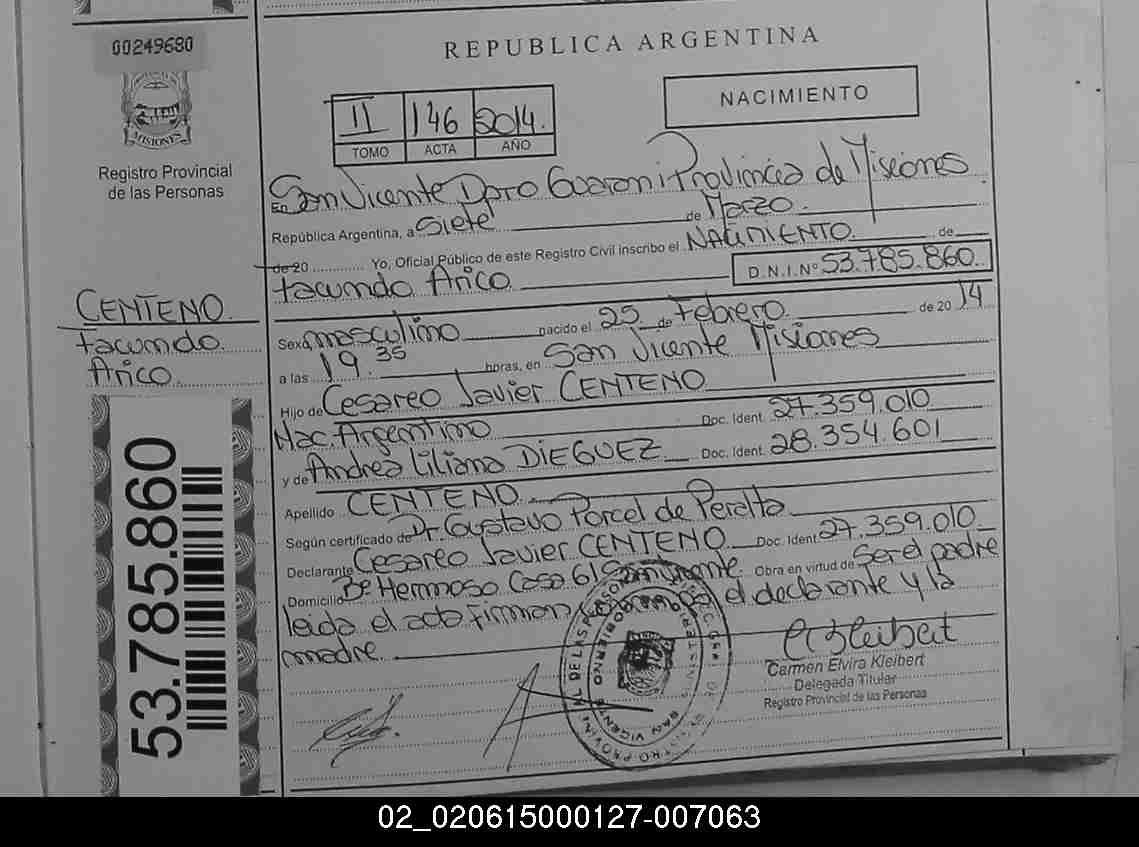 00249680
MISIONES
Registro Provincial
de las Personas
CENTENO
Facundo
Arico
53.785.860
REPUBLICA ARGENTINA
NACIMIENTO
II 146 2014.
TOMO ACTA AÑO
En San Vicente Dpto Guarani Provincia de Misiones
República Argentina, a Siete de Marzo
de 20 Yo, Oficial Público de este Registro Civil inscribo el NACIMIENTO de
Facundo Arico D.N.I.Nº 53.785.860
Sexo masculino nacido el 25 de Febrero de 2014
a las 19.35 horas, en San Vicente Misiones
Hijo de Cesareo Javier CENTENO
Nac. Argentino Doc. Ident. 27.359.010
y de Andrea Liliana DIEGUEZ Doc. Ident. 28.354.601
Apellido CENTENO
Según certificado de Dr. Gustavo Porcel de Peralta
Declarante Cesareo Javier CENTENO Doc. Ident. 27.359.010
Domicilio Bº Hermoso Casa 61 San Vicente Obra en virtud de Ser el padre
leida el acta Firman el declarante y la
madre.
CEKleibert
Carmen Elvira Kleibert
Delegada Titular
Registro Provincial de las Personas
SAN VICENTE
02_020615000127-007063